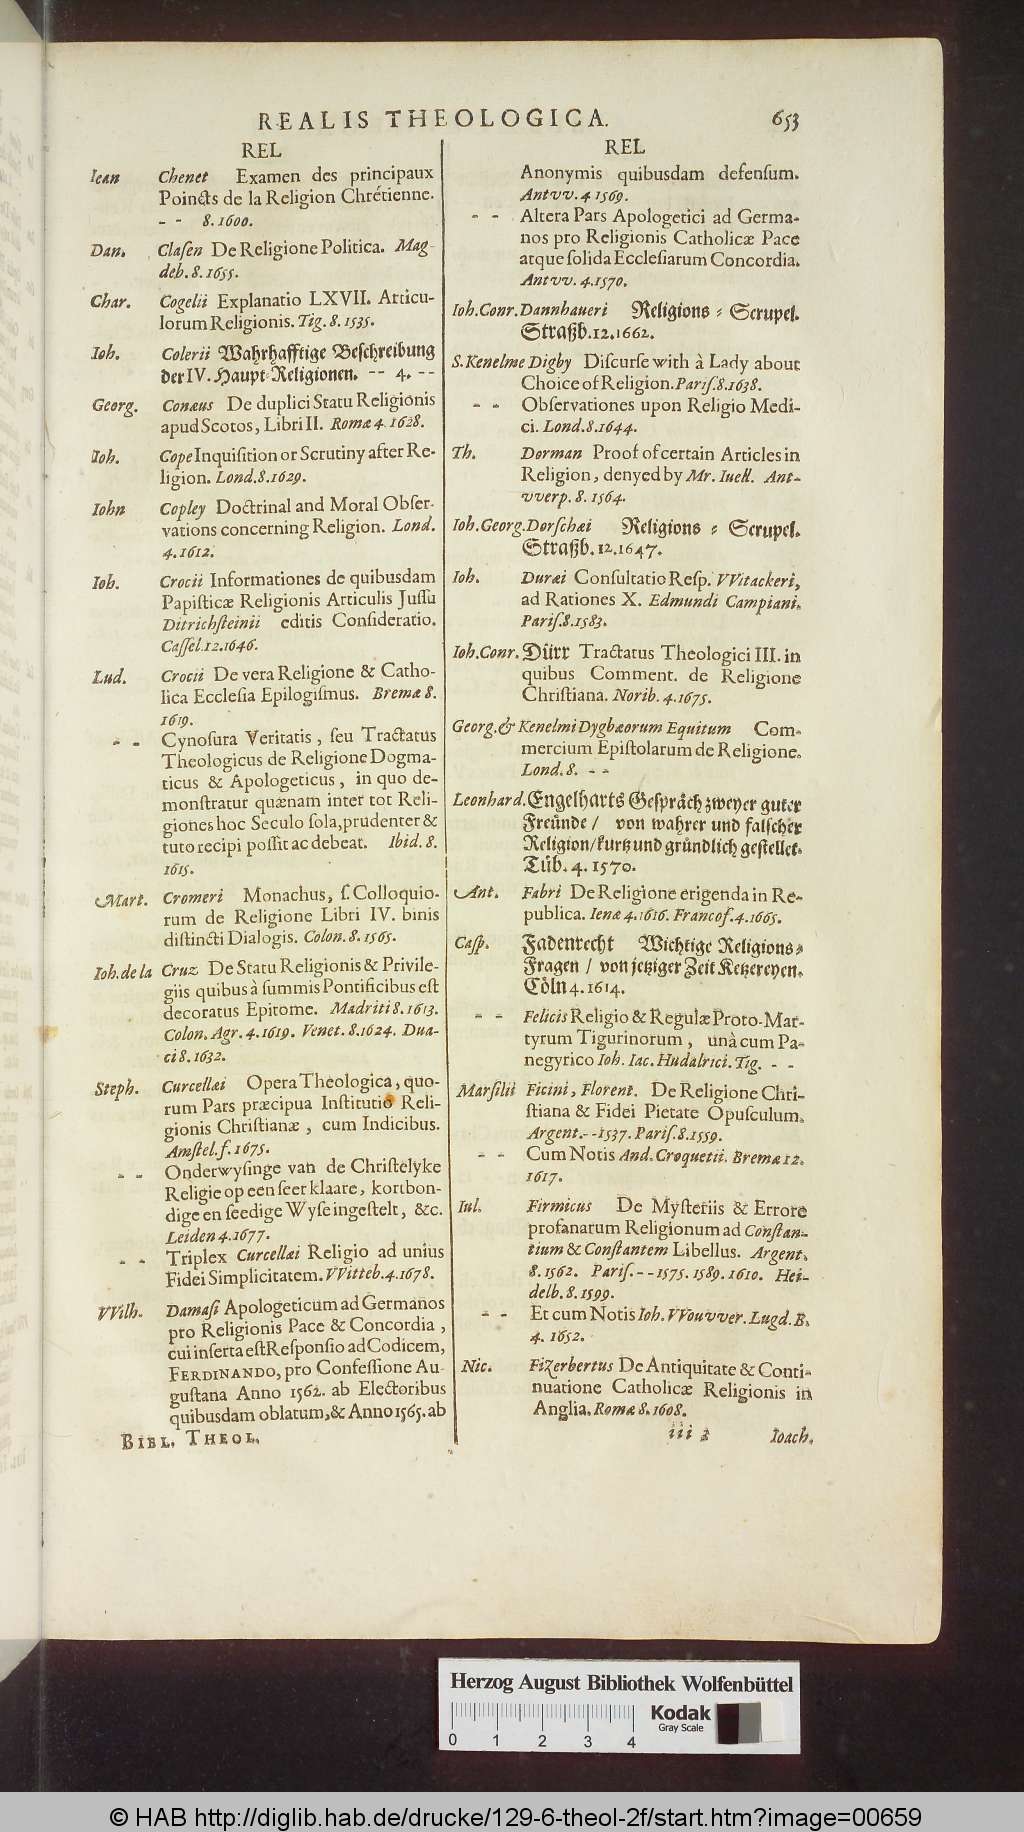 REALIS THEOLOGICA. 653
REL
Iean Chenet Examen des principaux
Poincts de la Religion Chrétienne.
- - 8. 1600.
Dan. Claſen De Religione Politica. Mag-
deb. 8. 1655.
Char. Cogelii Explanatio LXVII. Articu-
lorum Religionis. Tig. 8. 1535.
Ioh. Colerii Wahrhafftige Beſchreibung
der IV. Haupt-Religionen. - - 4. - -
Georg. Conæus De duplici Statu Religionis
apud Scotos, Libri II. Romæ 4. 1628.
Ioh. Cope Inquiſition or Scrutiny after Re-
ligion. Lond. 8. 1629.
Iohn Copley Doctrinal and Moral Obſer-
vations concerning Religion. Lond.
4. 1612.
Ioh. Crocii Informationes de quibusdam
Papiſticæ Religionis Articulis Juſſu
Ditrichſteinii editis Conſideratio.
Caſſel. 12. 1646.
Lud. Crocii De vera Religione & Catho-
lica Eccleſia Epilogiſmus. Bremæ 8.
1619.
- - Cynoſura Veritatis, ſeu Tractatus
Theologicus de Religione Dogma-
ticus & Apologeticus, in quo de-
monſtratur quænam inter tot Reli-
giones hoc Seculo ſola, prudenter &
tuto recipi poſſit ac debeat. Ibid. 8.
1615.
Mart. Cromeri Monachus, ſ. Colloquio-
rum de Religione Libri IV. binis
diſtincti Dialogis. Colon. 8. 1565.
Ioh. de la Cruz De Statu Religionis & Privile-
giis quibus à ſummis Pontificibus eſt
decoratus Epitome. Madriti 8. 1613.
Colon. Agr. 4. 1619. Venet. 8. 1624. Dua-
ci 8. 1632.
Steph. Curcellæi Opera Theologica, quo-
rum Pars præcipua Inſtitutio Reli-
gionis Chriſtianæ, cum Indicibus.
Amſtel. f. 1675.
- - Onderwyſinge van de Chriſtelyke
Religie op een ſeer klaare, kortbon-
dige en ſeedige Wyſe ingeſtelt, &c.
Leiden 4. 1677.
- - Triplex Curcellæi Religio ad unius
Fidei Simplicitatem. VVitteb. 4. 1678.
VVilh. Damaſi Apologeticum ad Germanos
pro Religionis Pace & Concordia,
cui inſerta eſt Reſponſio ad Codicem,
FERDINANDO, pro Confeſſione Au-
guſtana Anno 1562. ab Electoribus
quibusdam oblatum, & Anno 1565. ab
BIBL. THEOL.
REL
Anonymis quibusdam defenſum.
Antvv. 4 1569.
- - Altera Pars Apologetici ad Germa-
nos pro Religionis Catholicæ Pace
atque ſolida Eccleſiarum Concordia.
Antvv. 4. 1570.
Ioh. Conr. Dannhaueri Religions-Scrupel.
Straßb. 12. 1662.
S. Kenelme Digby Diſcurſe with à Lady about
Choice of Religion. Pariſ. 8. 1638.
- - Obſervationes upon Religio Medi-
ci. Lond. 8. 1644.
Th. Dorman Proof of certain Articles in
Religion, denyed by Mr. Iuell. Ant-
vverp. 8. 1564.
Ioh. Georg. Dorſchæi Religions-Scrupel.
Straßb. 12. 1647.
Ioh. Duræi Conſultatio Reſp. VVitackeri,
ad Rationes X. Edmundi Campiani.
Pariſ. 8. 1583.
Ioh. Conr. Dürr Tractatus Theologici III. in
quibus Comment. de Religione
Chriſtiana. Norib. 4. 1675.
Georg. & Kenelmi Dygbæorum Equitum Com-
mercium Epiſtolarum de Religione.
Lond. 8. - -
Leonhard. Engelharts Geſpräch zweyer guter
Freünde / von wahrer und falſcher
Religion / kurtz und gründlich geſtellet.
Tüb. 4. 1570.
Ant. Fabri De Religione erigenda in Re-
publica. Ienæ 4. 1616. Francof. 4. 1665.
Caſp. Fadenrecht Wichtige Religions-
Fragen / von jetziger Zeit Ketzereyen.
Cöln 4. 1614.
- - Felicis Religio & Regulæ Proto-Mar-
tyrum Tigurinorum, unà cum Pa-
negyrico Ioh. Iac. Hudalrici. Tig. - -
Marſilii Ficini, Florent. De Religione Chri-
ſtiana & Fidei Pietate Opuſculum.
Argent. - - 1537. Pariſ. 8. 1559.
- - Cum Notis And. Croquetii. Bremæ 12.
1617.
Iul. Firmicus De Myſteriis & Errore
profanarum Religionum ad Conſtan-
tium & Conſtantem Libellus. Argent.
8. 1562. Pariſ. - - 1575. 1589. 1610. Hei-
delb. 8. 1599.
- - Et cum Notis Ioh. VVouvver. Lugd. B.
4. 1652.
Nic. Fizerbertus De Antiquitate & Conti-
nuatione Catholicæ Religionis in
Anglia. Romæ 8. 1608.
iii 2 Ioach.
Herzog August Bibliothek Wolfenbüttel
Kodak
Gray Scale
0 1 2 3 4
© HAB http://diglib.hab.de/drucke/129-6-theol-2f/start.htm?image=00659